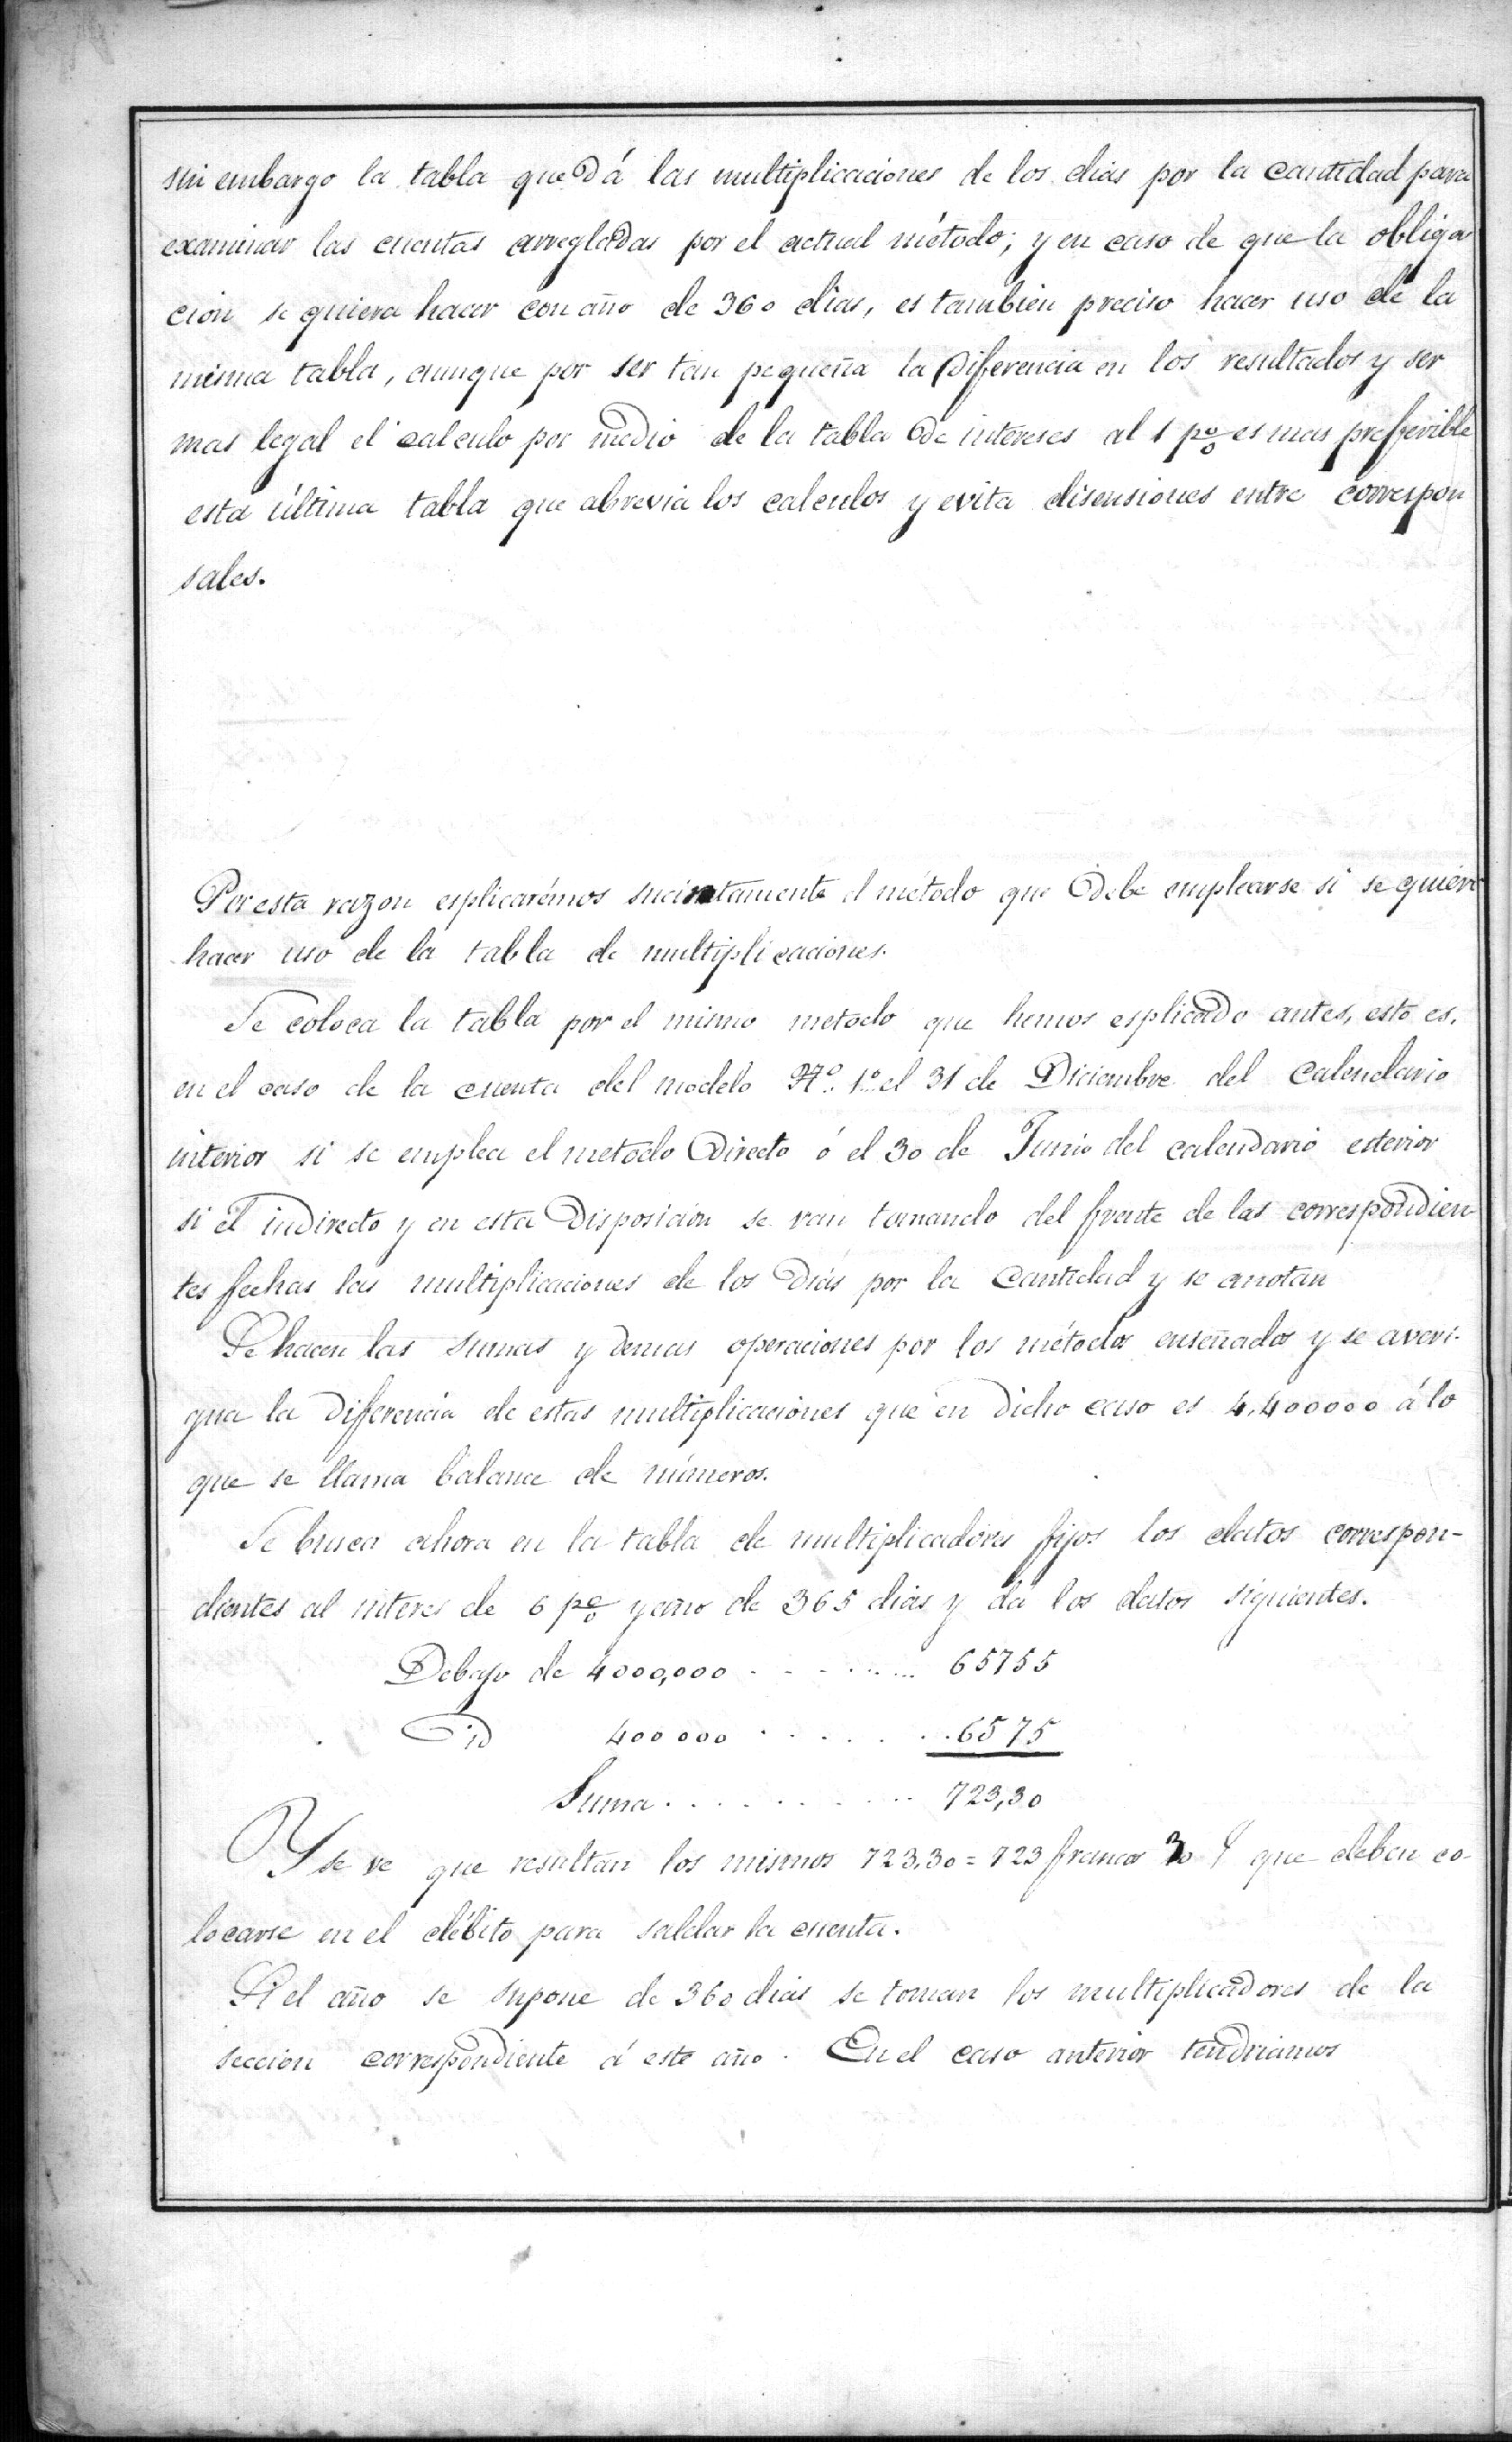 sin embargo la tabla que dá las multiplicaciones de los dias por la cantidad para
examinar las cuentas arregladas por el actual método; y en caso de que la obliga
cion se quiera hacer con año de 360 dias, es tambien preciso hacer uso de la
misma tabla, aunque por ser tan pequeña la diferencia en los resultados y ser
mas legal el calculo por medio de la tabla de intereses al 1 p% es mas prefferible
esta última tabla que abrevia los calculos y evita disensiones entre correspon
sales.
Por esta razon esplicarémos sucintamente el método que debe emplearse si se quiere
hacer uso de la tabla de multiplicaciones.
Se coloca la tabla por el mismo metodo que hemos esplicado antes, esto es,
en el caso de la cuenta del modelo Nº. 1º el 31 de Diciembre del Calendario
interior si se emplea el metodo directo ó el 30 de Junio del calendario esterior
si el indirecto y en esta disposicion se van tomando del frente de las correspondien
tes fechas las multiplicaciones de los dias por la cantidad y se anotan
Se hacen las sumas y demas operaciones por los métodos enseñados y se averi-
gua la diferencia de estas multiplicaciones que en dicho caso es 4,400000 á lo
que se llama balance de números.
Se busca ahora en la tabla de multiplicadores fijos los datos correspon-
dientes al interes de 6 p% y año de 365 dias y da los datos siguientes.
Debajo de 4000,000 . . . . . . . . 65755
Id 400000 . . . . . . . 6575
Suma . . . . . . . . . . 723,30
Y se ve que resultan los mismos 723,30 = 723 francos 30 que deben co-
locarse en el débito para saldar la cuenta.
Si el año se supone de 360 dias se toman los multiplicadores de la
seccion correspondiente á este año. En el caso anterior tendriamos